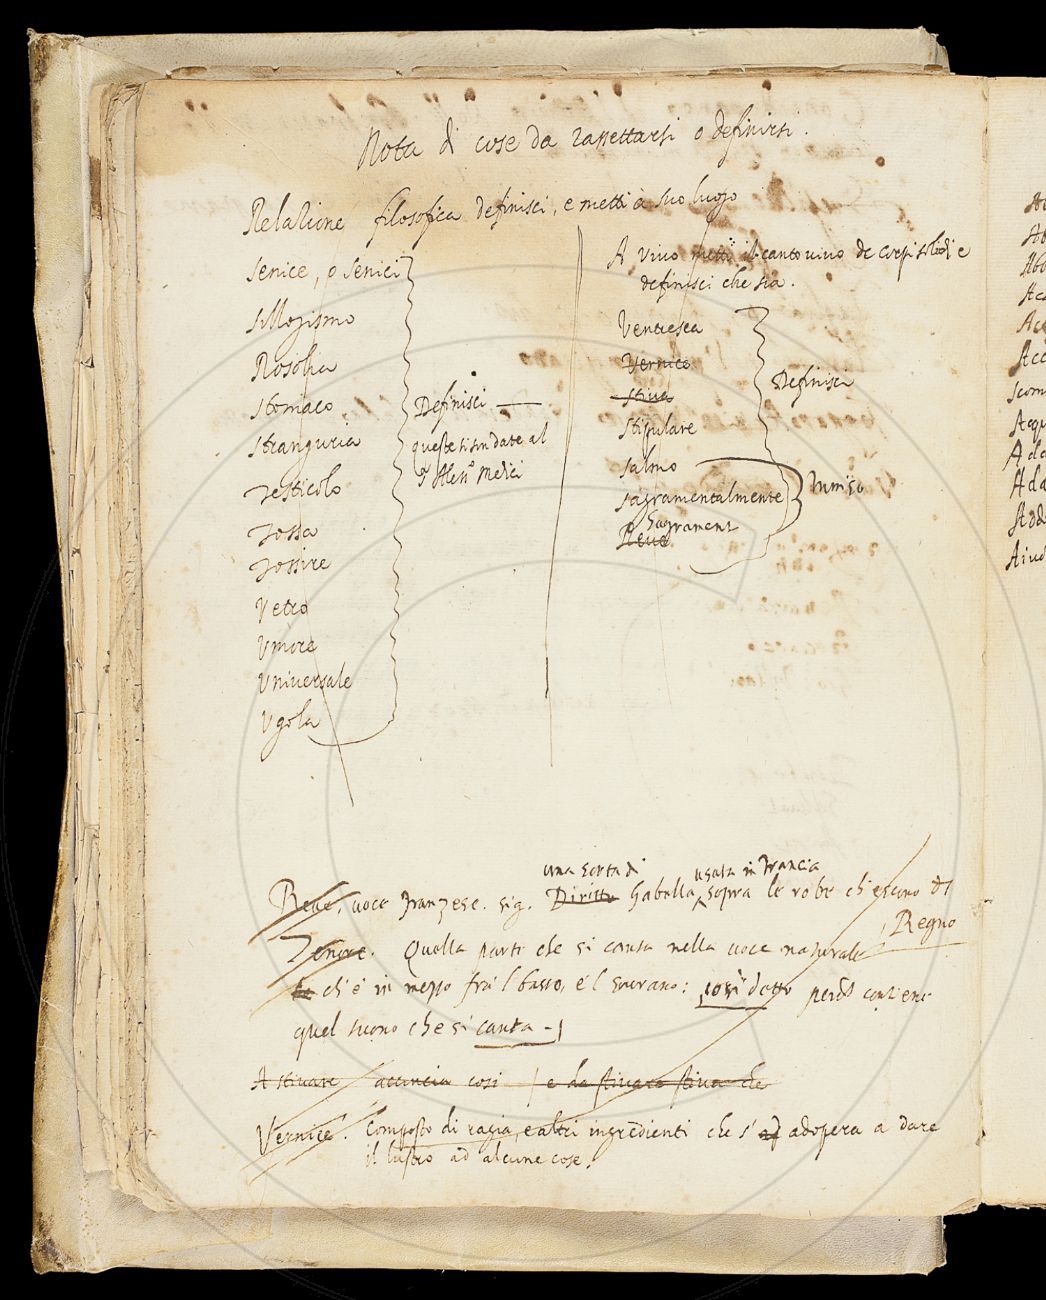 Nota di cose da rassettarsi o definirsi.
Relazione filosofica definisci, e metti a suo luogo
Senice, o senici
Sillogismo
Rosolia
Stomaco
Stranguria
Testicolo
Tossa
Tossire
Vetro
Umore
Universale
Ugola
Definisci
queste si son date al
Medici
A vivo metti il canto vivo de
definisci che sia.
Ventresca
Vernice
Stiva
Stipulare
Salmo
Sagramentalmente
o Sagrament
Reve
Definisci
Reve, voce franzese. sig. Diritto una sorta di Gabella, usata in Francia sopra le robe ch'escono di
Regno
Tenore. Quella parte che si canta nella voce naturale
ch'è in mezzo fra 'l basso, e 'l sovrano: così detto perchè contiene
quel suono che si canta
A stivare accincia così e da stivare stiva che
Vernice. Composto di ragia, e altri ingredienti che s' adopera a dare
il lustro ad alcune cose.